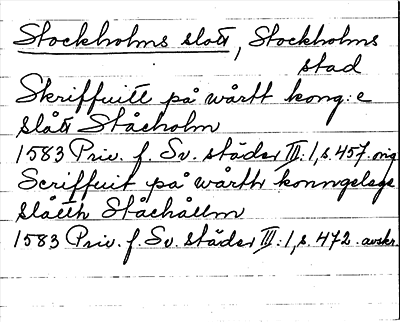 Stockholms slott, Stockholms
stad
Skriffuitt på wårtt kong: e
slått Ståcholm
1583 Priv. f. Sv. städer III:1, s. 457. orig
Scriffuit på wårth konngelege
slåtth Ståchållm
1583 Priv. f. Sv. städer III:1, s. 472. avskr.